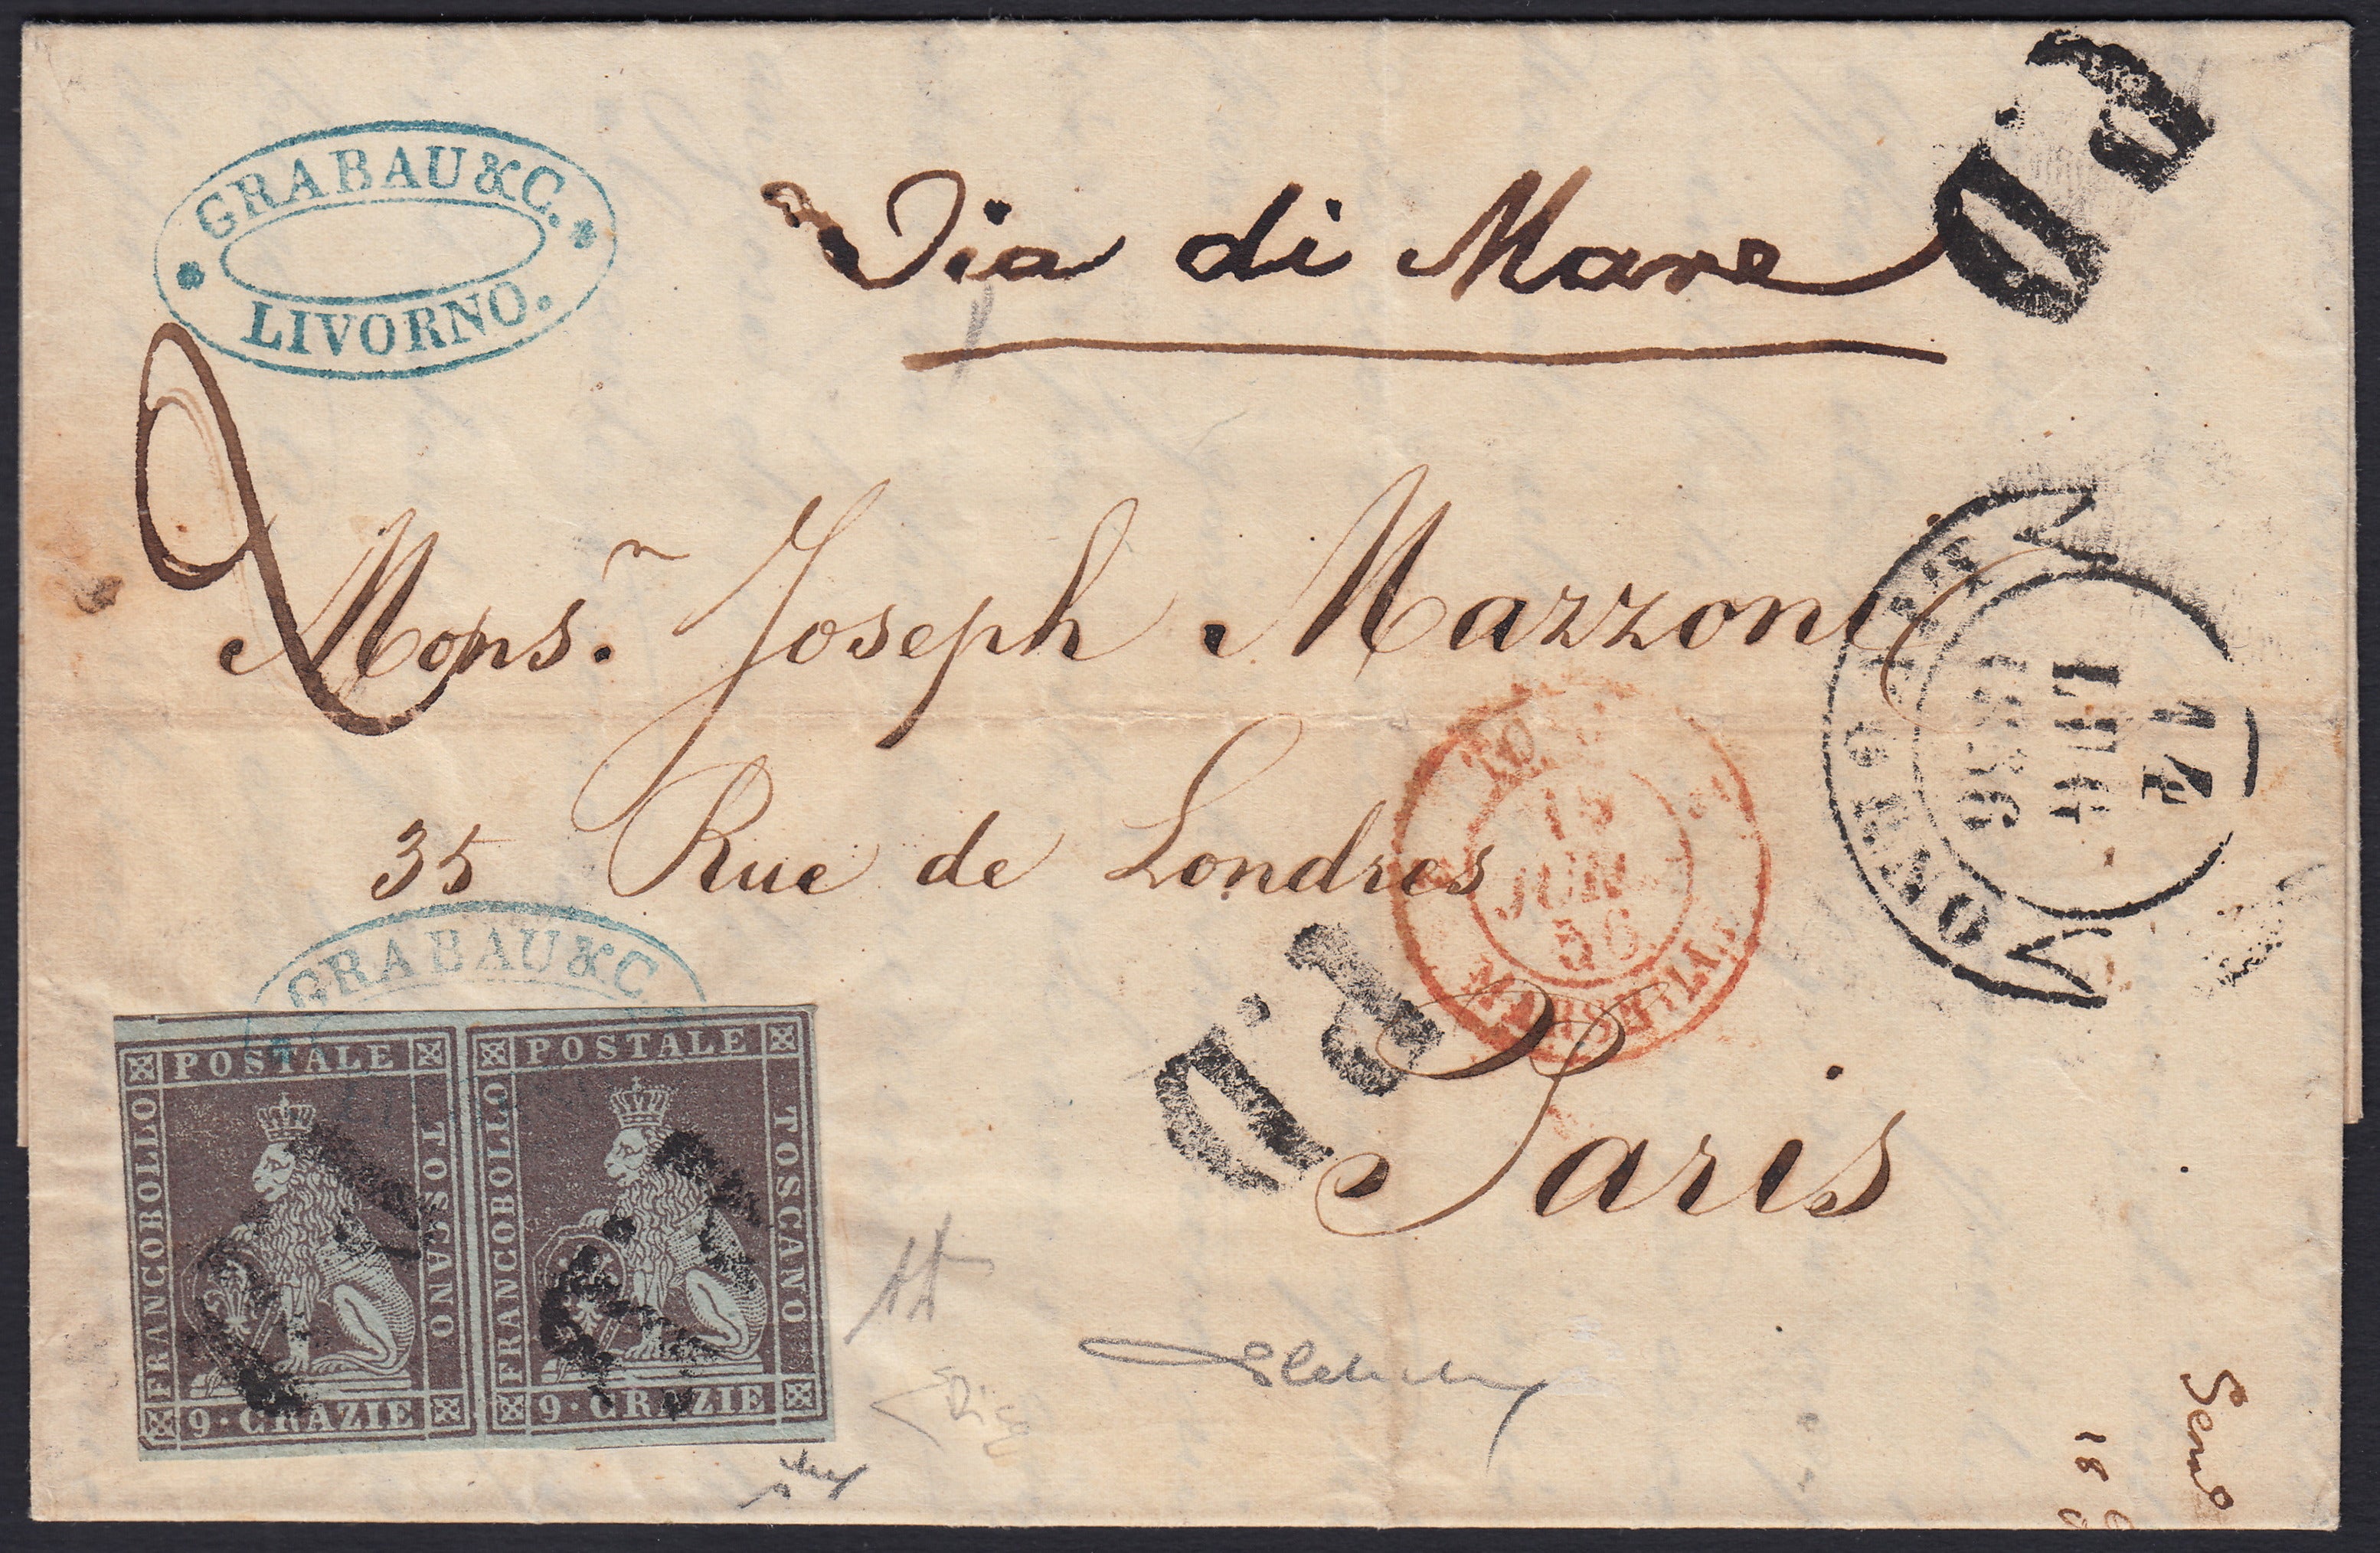 GRABAU & C.
LIVORNO.
Via di Mare
P.D
Mons.r Joseph Mazzoni
35 Rue de Londres
Paris
LIVORNO
12
GIU
1856
TOSC.
15
JUIN
56
MARSEILLE
P.D
GRABAU & C
FRANCOBOLLO POSTALE TOSCANO
9·CRAZIE
FRANCOBOLLO POSTALE TOSCANO
9·CRAZIE
P.D
P.D
18